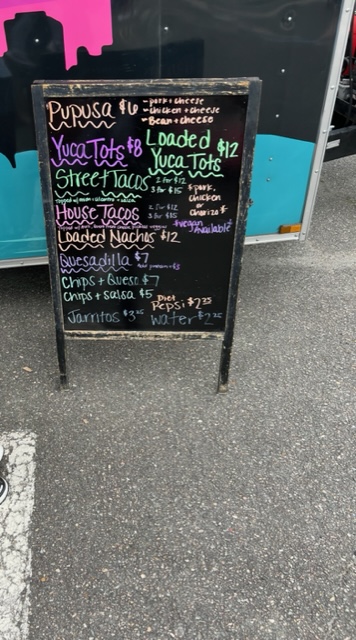 Pupusa $6
- pork + cheese
- chicken + cheese
- Bean + cheese
Yuca Tots $8
Loaded Yuca Tots $12
Street Tacos
2 for $12
3 for $15
House Tacos
2 for $12
3 for $15
*pork,
chicken
or
chorizo*
*vegan
Available*
Loaded Nachos $12
Quesadilla $7
Chips + Queso $7
Chips + salsa $5
Diet
Pepsi $2.25
Jarritos $3.25
water $2.25